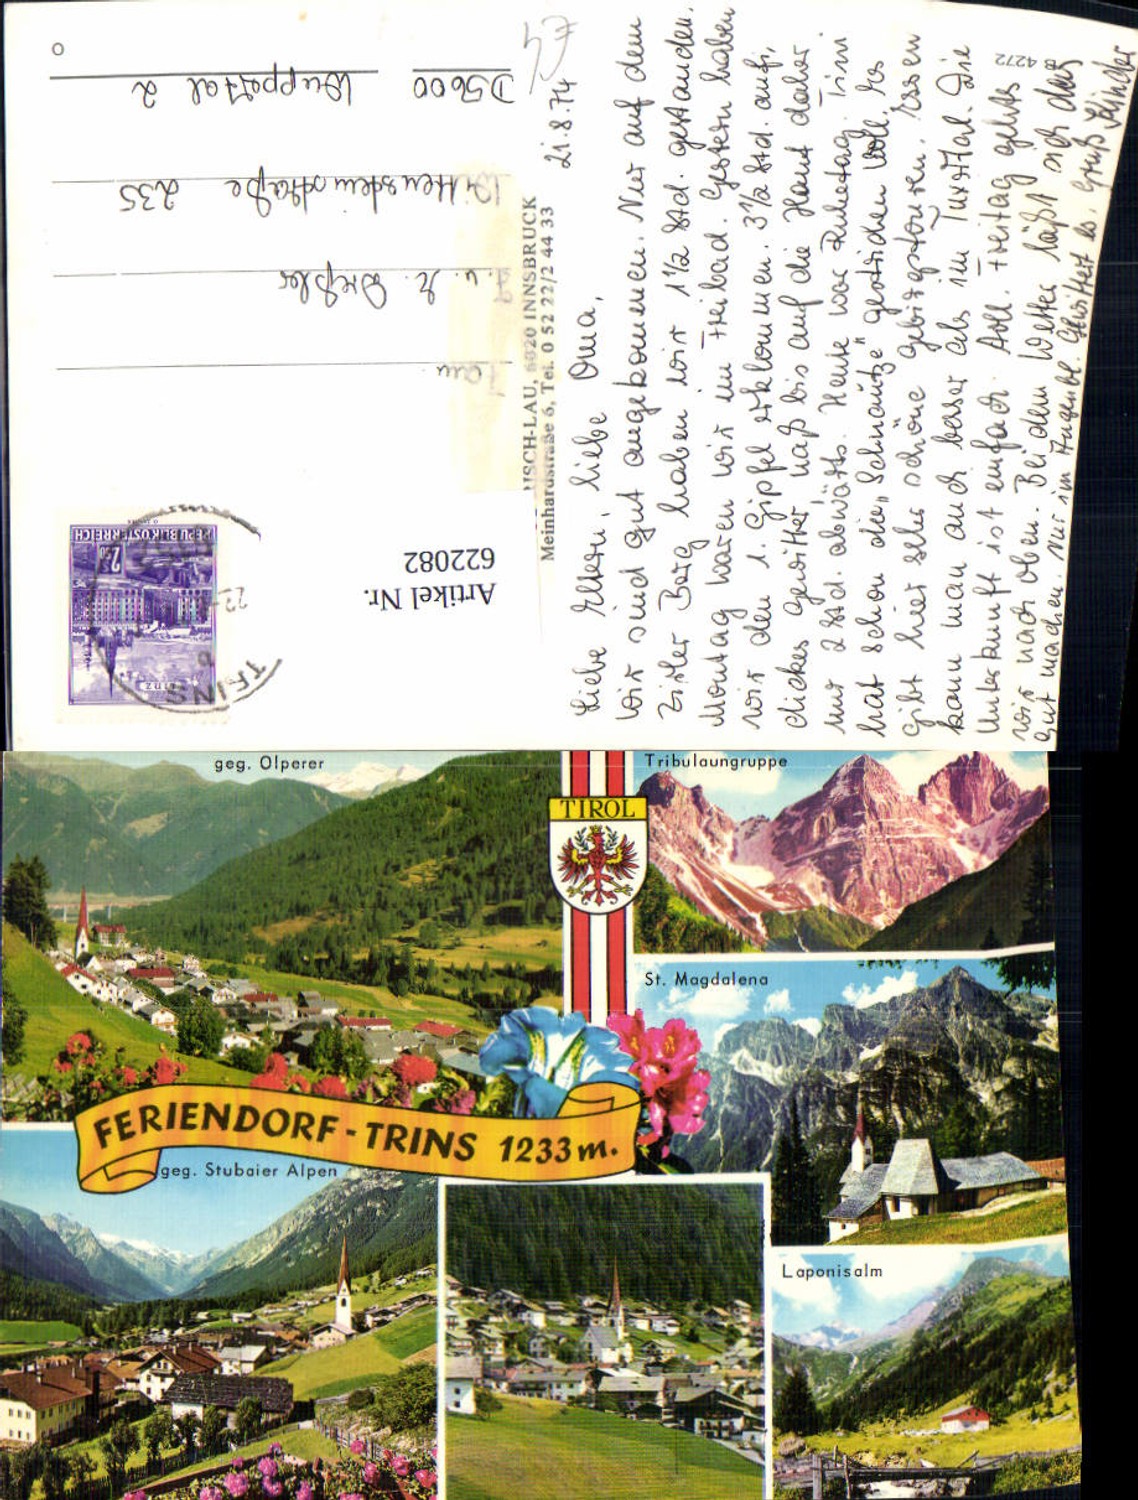 21.8.74
Liebe Eltern, liebe Oma,
wir sind gut angekommen. Nur auf dem
Zirler Berg haben wir 1 1/2 Std. gestanden.
Montag waren wir im Freibad. Gestern haben
wir den 1. Gipfel erklommen. 3 1/2 Std. aufi,
dickes Gewitter naß bis auf die Haut daher
nur 2 Std. abwärts. Heute war Ruhetag. Tim
hat schon die „Schnautze" gestrichen voll. Es
gibt hier sehr schöne Gebirgstouren. Essen
kann man auch besser als im Tuxertal. Die
Unterkunft ist einfach toll. Freitag gehts
wir nach oben. Bei dem Wetter läßt sich das
gut machen. Nur im Augenbl. Gewittert es. Gruß Kinder
B 4272
€4
USCH-LAU, 6020 INNSBRUCK
Meinhardstraße 6, Tel. 0 52 22/2 44 33
Artikel Nr.
622082
LINZ
2.50
REPUBLIK ÖSTERREICH
TRINS
22.
u. K. Dreßler
Wittensteinstraße 235
D5600 Wuppertal 2
geg. Olperer
Tribulaungruppe
TIROL
St. Magdalena
FERIENDORF-TRINS 1233 m.
geg. Stubaier Alpen
Laponisalm